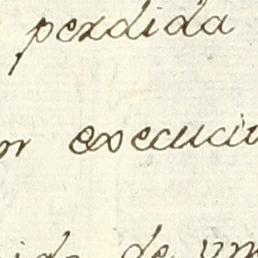 perdida
or execuci
ida de um